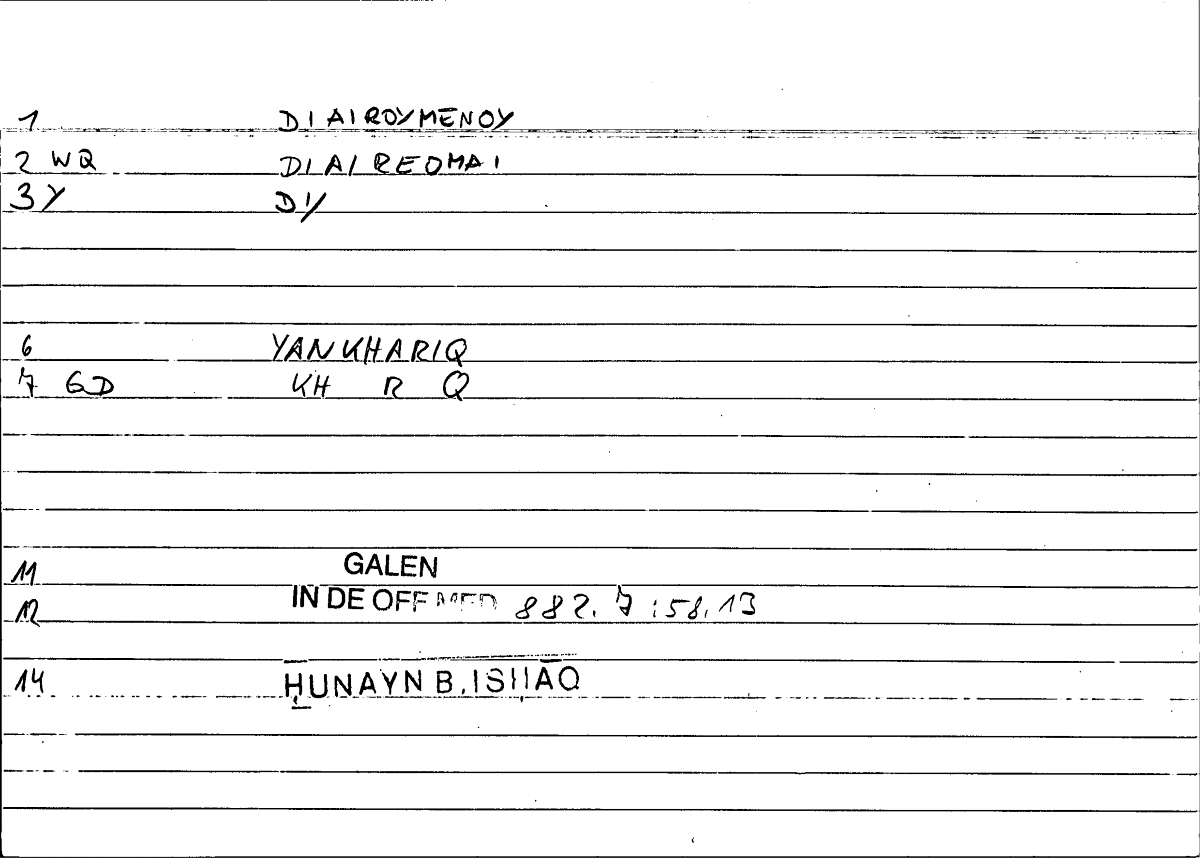 1 DIAIROYMENOY
2 WQ DIAIREOMAI
3Y DY
6 YANKHARIQ
7 GD KH R Q
11 GALEN
12 IN DE OFF MED 882.7:58.13
14 ḤUNAYN B. ISḤĀQ